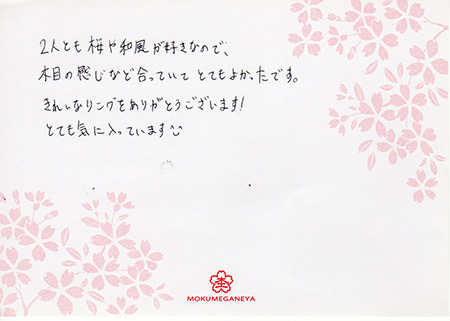 2人とも桜や和風が好きなので、
木目の感じなど合っていてとてもよかったです。
きれいなリングをありがとうございます!
とても気に入っています
MOKUMEGANEYA